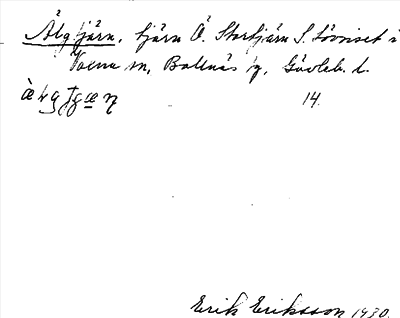 Älgtjärn, tjärn Ö. Stortjärn S. Lövriset i
Voxna sn, Bollnäs fg, Gävleb. l.
14.
Erik Eriksson 1930.